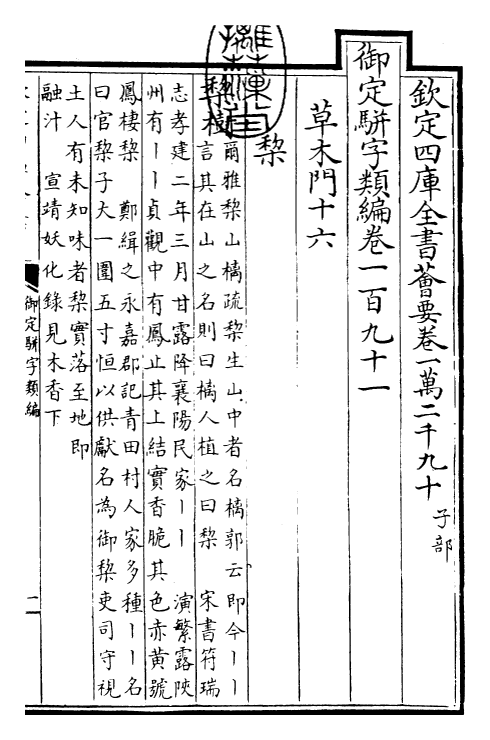 欽定四庫全書薈要卷一萬二千九十 子部
御定駢字類編卷一百九十一
草木門十六
棃
棃樹
爾雅棃山樆疏棃生山中者名樆郭云即今丨丨
言其在山之名則曰樆人植之曰棃 宋書符瑞
志孝建二年三月甘露降襄陽民家丨丨 演繁露陜
州有丨丨貞觀中有鳳止其上結實香脆其色赤黃號
鳳棲棃 鄭緝之永嘉郡記青田村人家多種丨丨名
曰官棃子大一圍五寸恒以供獻名為御棃吏司守視
土人有未知味者棃實落至地即
融汁 宣靖妖化錄見木香下
御定駢字類編
一